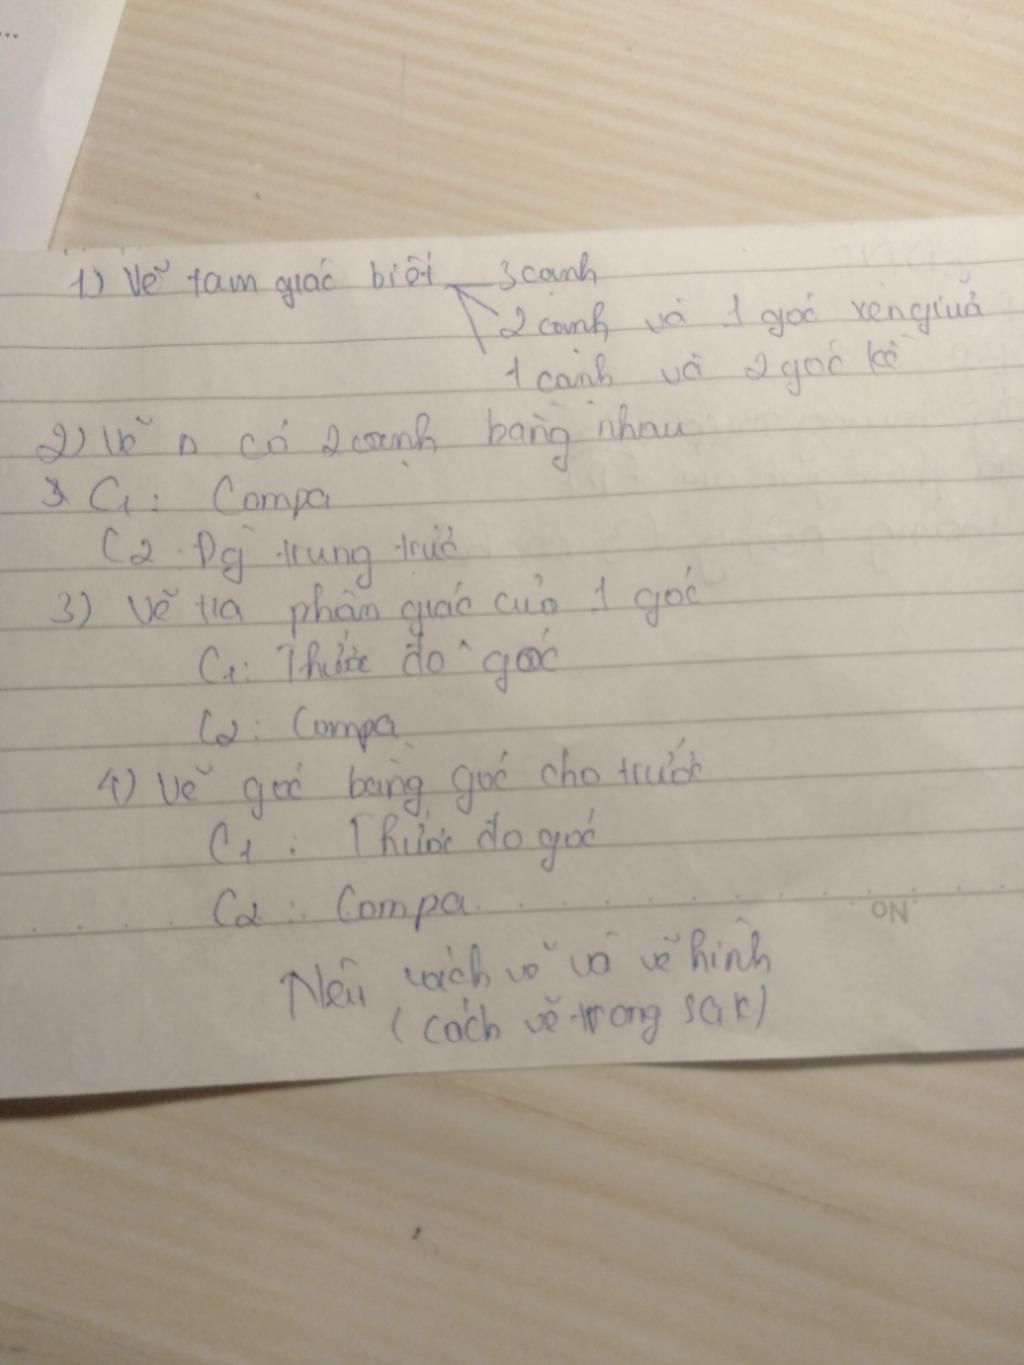 1) Vẽ tam giác biết 3 cạnh
2 cạnh và 1 góc xen giữa
1 cạnh và 2 góc kề
2) Vẽ Δ có 2 cạnh bằng nhau
C1: Compa
C2 Đg trung trực
3) Vẽ tia phân giác của 1 góc
C1: Thước đo góc
C2: Compa
4) Vẽ góc bằng góc cho trước
C1: Thước đo góc
C2: Compa
NO
Nêu cách vẽ và vẽ hình
(cách vẽ trong SGK)